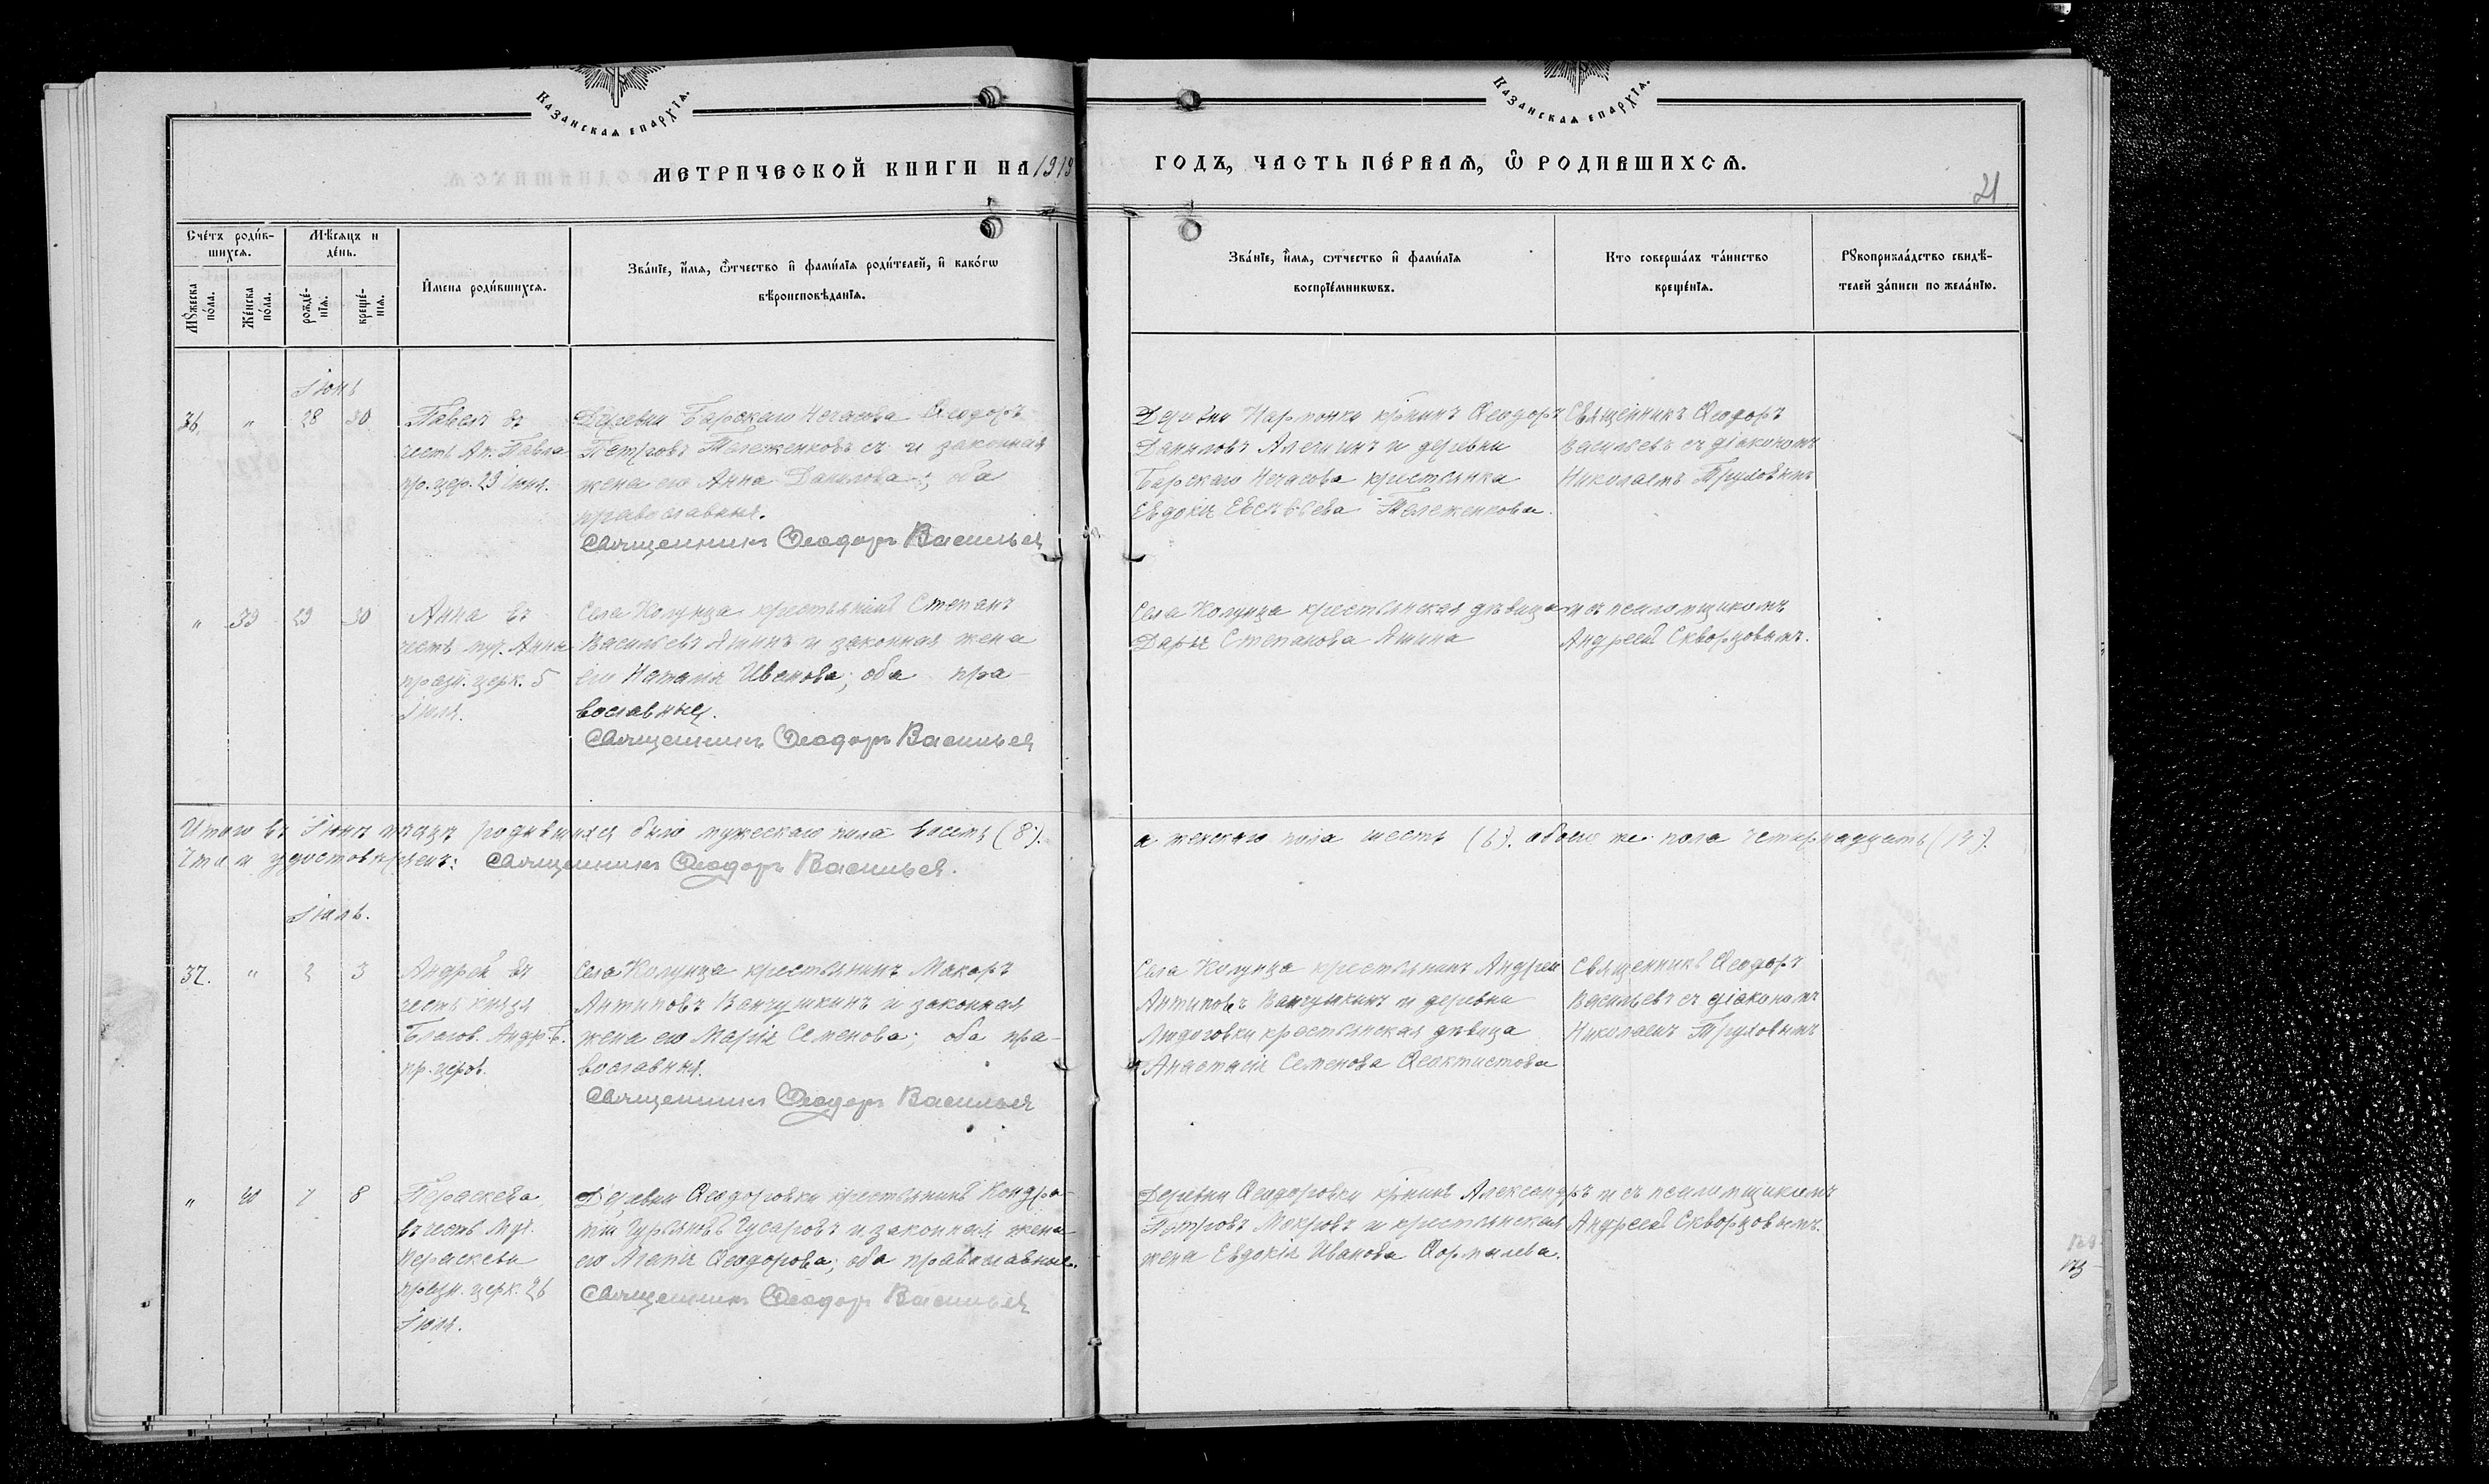 Казанская епархїѧ.
Казанская епархїѧ.
МЕТРИЧЕСКОЙ КНИГИ НА 1919
ГОДЪ, ЧАСТЬ ПЕ́РВАѦ, Ѿ РОДИВШИХСѦ.
21
Сче́тъ роди́в-
шихсѧ.
Мѣсяцъ и
де́нь.
Мꙋ́жеска
по́ла.
Же́нска
по́ла.
рожде́-
нїѧ.
креще́-
нїѧ.
И҆мена роди́вшихсѧ.
Зва́нїе, и҆́мѧ, ѻ҆́тчество и҆ фами́лїѧ роди́телей, и҆ како́гѡ
вѣроисповѣ́данїѧ.
Зва́нїе, и҆́мѧ, ѻ҆́тчество и҆ фами́лїѧ
воспрїе́мникѡвъ.
Кто соверша́лъ та́инство
креще́нїѧ.
Рꙋкоприкла́дство свидѣ́-
телей за́писи по жела́нїю.
Іюнь
36. " 28 30
Павелъ въ
честь Ап. Павла
пр. цер. 29 Іюня.
Деревни Барскаго Нечасова Ѳеодоръ
Петровъ Тележенковъ и законная
жена его Анна Данилова; оба
православные.
Священникъ Ѳеодоръ Васильев
Деревни Нармонки кр‑нинъ Ѳеодоръ
Даниловъ Алешинъ и деревни
Барскаго Нечасова крестьянка
Евдокія Тележенкова.
Священникъ Ѳеодоръ
Васильевъ съ діакономъ
Николаемъ Труловымъ
" 39 29 30
Анна въ
честь муч. Анны
празн. церк. 5
Іюля.
Села Колунца крестьянинъ Степанъ
Васильевъ Яшинъ и законная жена
его Наталія Иванова; оба пра-
вославные.
Священникъ Ѳеодоръ Васильев
Села Колунца крестьянская дѣвица
Дарья Степанова Яшина
и съ псаломщикомъ
Андреемъ Скворцовымъ.
Итого въ Іюнѣ мѣсяцѣ родившихся было мужескаго пола восемь (8).
а женскаго пола шесть (6). обоего же пола четырнадцать (14).
Что и удостовѣряемъ: Священникъ Ѳеодоръ Васильев.
Іюль.
37. " 2 3
Андрей въ
честь князя
Благов. Андр. Б.
пр. церк.
Села Колунца крестьянинъ Макаръ
Антиповъ Ванчушкинъ и законная
жена его Марія Семенова; оба пра-
вославные.
Священникъ Ѳеодоръ Васильев
Села Колунца крестьянинъ Андрей
Антиповъ Ванчушкинъ и деревни
Людоговки крестьянская дѣвица
Анастасія Семенова Ѳеоктистова
Священникъ Ѳеодоръ
Васильевъ съ діакономъ
Николаемъ Труловымъ
" 40 7 8
Параскева
въ честь Муч.
Параскевы
празн. церк. 26
Іюля.
Деревни Ѳеодоровки крестьянинъ Кондра-
тій Гурьяновъ Гусаровъ и законная жена
его Агапія Ѳеодорова; оба православные.
Священникъ Ѳеодоръ Васильев
Деревни Ѳеодоровки кр‑нинъ Александръ
Петровъ Макровъ и крестьянская
жена Евдокія Иванова
и съ псаломщикомъ
Андреемъ Скворцовымъ.